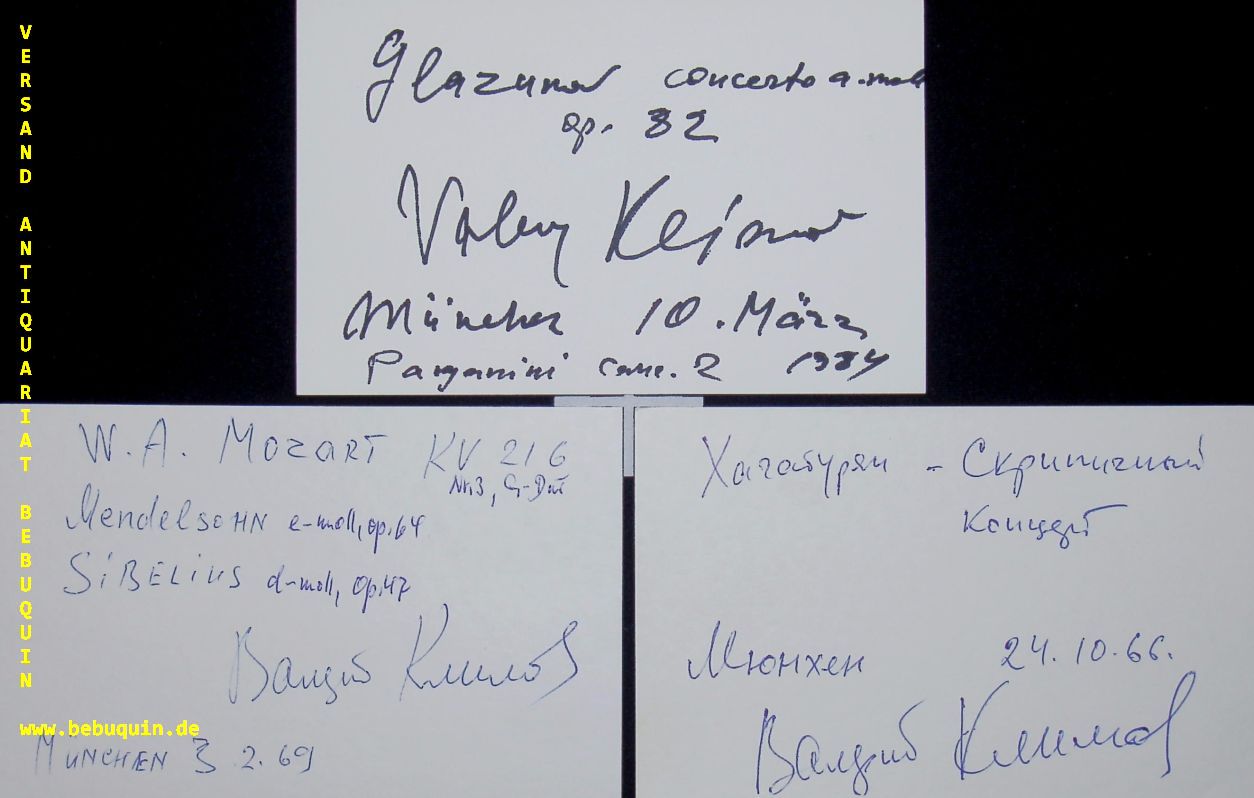 VERSAND ANTIQUARIAT BEBUQUIN
Glazunov concerto a-moll
op. 82
Valery Klimov
München 10. März
Paganini conc. 2 1984
W. A. MOZART KV 216
Nr. 3, G-Dur
MendelsOHN e-moll, op. 64
SiBELiUS d-moll, op. 47
Валерий Климов
MÜNCHEN 3. 2. 69
www.bebuquin.de
Хачатурян - Скрипичный
Концерт
Мюнхен 24. 10. 66.
Валерий Климов